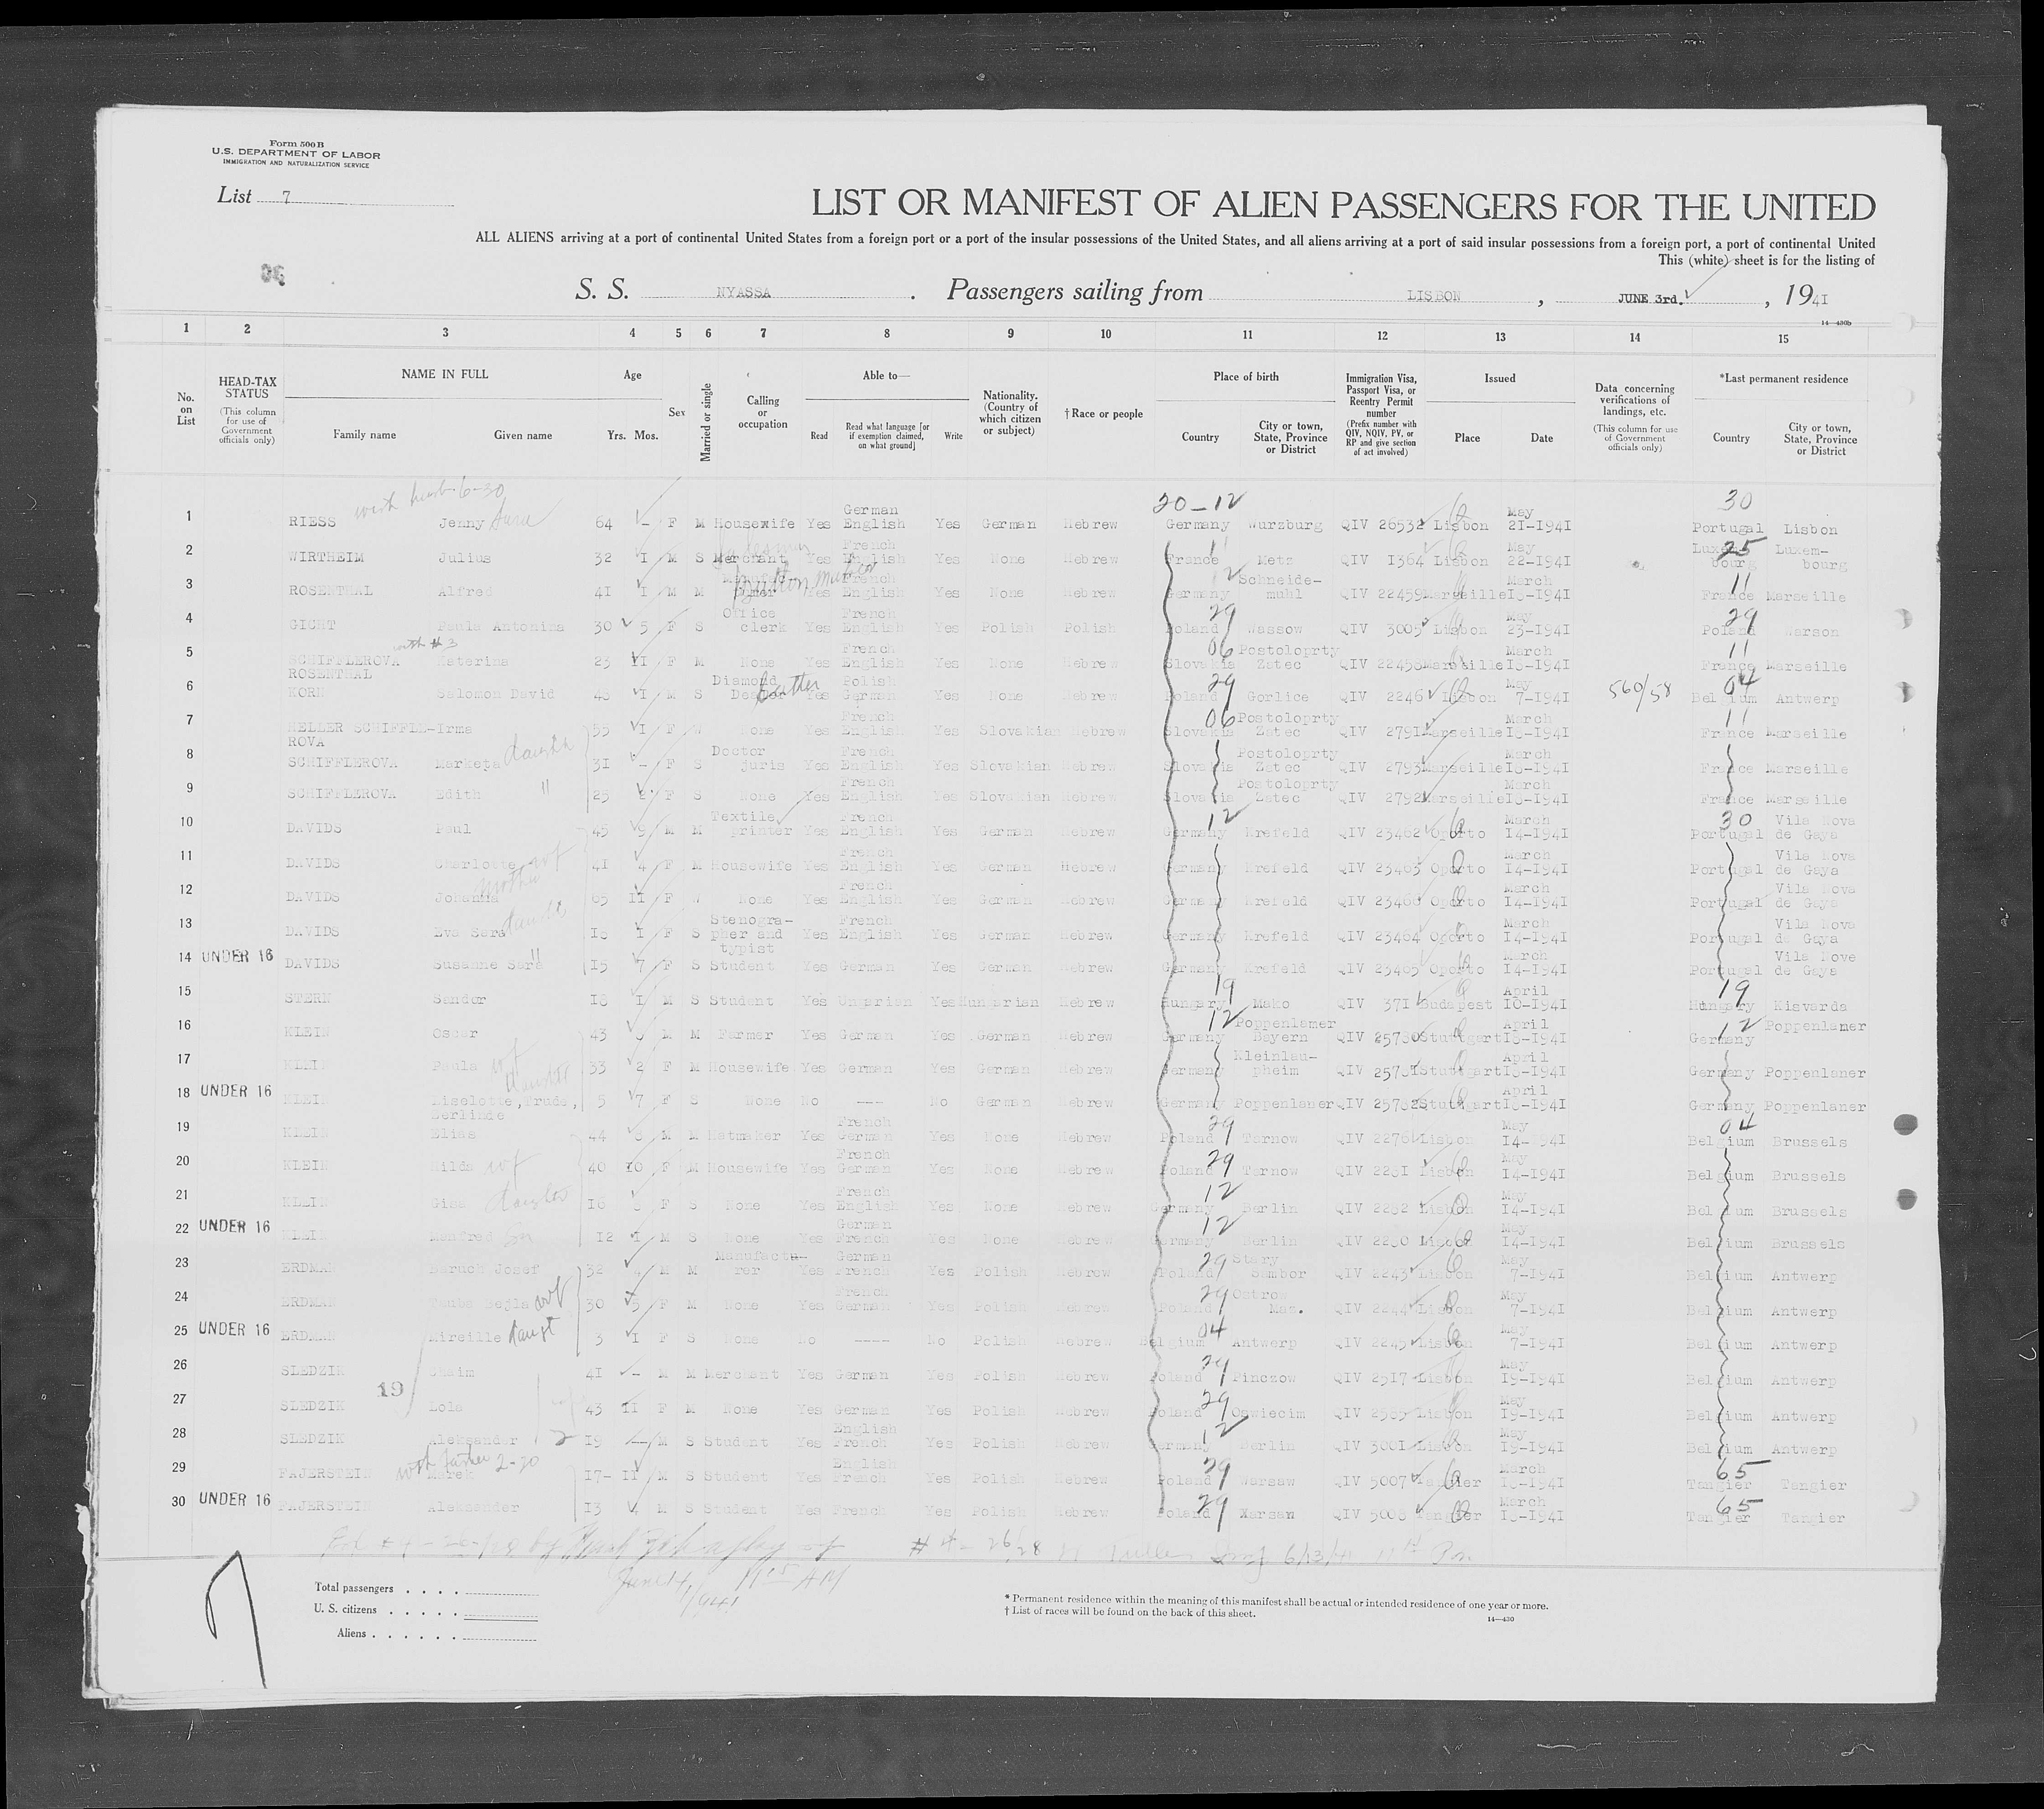 Form 500B
U.S. DEPARTMENT OF LABOR
IMMIGRATION AND NATURALIZATION SERVICE
List 7
LIST OR MANIFEST OF ALIEN PASSENGERS FOR THE UNITED
ALL ALIENS arriving at a port of continental United States from a foreign port or a port of the insular possessions of the United States, and all aliens arriving at a port of said insular possessions from a foreign port, a port of continental United
This (white) sheet is for the listing of
S. S. NYASSA . Passengers sailing from LISBON , JUNE 3rd. , 1941
14—430b
1 2 3 4 5 6 7 8 9 10 11 12 13 14 15
No. on List
HEAD-TAX STATUS (This column for use of Government officials only)
NAME IN FULL Family name Given name
Age Yrs. Mos.
Sex
Married or single
Calling or occupation
Able to— Read Read what language [or if exemption claimed, on what ground] Write
Nationality. (Country of which citizen or subject)
†Race or people
Place of birth Country City or town, State, Province or District
Immigration Visa, Passport Visa, or Reentry Permit number (Prefix number with QIV, NQIV, PV, or RP and give section of act involved)
Issued Place Date
Data concerning verifications of landings, etc. (This column for use of Government officials only)
*Last permanent residence Country City or town, State, Province or District
with husb. 6-30 20-12 30
1 RIESS Jenny Sara 64 - F M Housewife Yes German English Yes German Hebrew Germany Wurzburg QIV 26532 Lisbon May 21-1941 Portugal Lisbon
2 WIRTHEIM Julius 32 1 M S Merchant Yes French English Yes None Hebrew France Metz QIV 1364 Lisbon May 22-1941 Luxembourg 25 Luxem-bourg
3 ROSENTHAL Alfred 41 1 M M Yes French English Yes None Hebrew Germany 12 Schneide-muhl QIV 22459 Marseille March 18-1941 France 11 Marseille
4 GICHT Paula Antonina 30 5 F S Office clerk Yes French English Yes Polish Polish Poland 29 Wassow QIV 3005 Lisbon May 23-1941 Poland 29 Warson
with #3
5 SCHIFFLEROVA ROSENTHAL Katerina 23 11 F M None Yes French English Yes None Hebrew Slovakia 06 Postoloprty Zatec QIV 22458 Marseille March 18-1941 France 11 Marseille
6 KORN Salomon David 48 1 M S Diamond Yes Polish German Yes None Hebrew Poland 29 Gorlice QIV 2246 Lisbon May 7-1941 560/58 Belgium 04 Antwerp
7 HELLER SCHIFFLE-ROVA Irma 55 1 F W None Yes French English Yes Slovakian Hebrew Slovakia 06 Postoloprty Zatec QIV 2791 Marseille March 18-1941 France 11 Marseille
8 SCHIFFLEROVA Marketa daughter 31 - F S Doctor juris Yes French English Yes Slovakian Hebrew Slovakia Postoloprty Zatec QIV 2793 Marseille March 18-1941 France Marseille
9 SCHIFFLEROVA Edith " 25 2 F S None Yes French English Yes Slovakian Hebrew Slovakia Postoloprty Zatec QIV 2792 Marseille March 18-1941 France Marseille
10 DAVIDS Paul 45 9 M M Textile printer Yes French English Yes German Hebrew Germany 12 Krefeld QIV 23462 Oporto March 14-1941 Portugal 30 Vila Nova de Gaya
11 DAVIDS Charlotte wf 41 4 F M Housewife Yes French English Yes German Hebrew Germany Krefeld QIV 23463 Oporto March 14-1941 Portugal Vila Nova de Gaya
12 DAVIDS Johanna mother 65 11 F W None Yes French English Yes German Hebrew Germany Krefeld QIV 23466 Oporto March 14-1941 Portugal Vila Nova de Gaya
13 DAVIDS Eva Sara 18 1 F S Stenogra-pher and typist Yes French English Yes German Hebrew Germany Krefeld QIV 23464 Oporto March 14-1941 Portugal Vila Nova de Gaya
14 UNDER 16 DAVIDS Susanne Sara " 15 7 F S Student Yes German Yes German Hebrew Germany Krefeld QIV 23465 Oporto March 14-1941 Portugal Vila Nove de Gaya
15 STERN Sandor 18 1 M S Student Yes Ungarian Yes Hungarian Hebrew Hungary 19 Mako QIV 371 Budapest April 10-1941 Hungary 19 Kisvarda
16 KLEIN Oscar 43 M M Farmer Yes German Yes German Hebrew Germany 12 Poppenlamer Bayern QIV 25780 Stuttgart April 18-1941 Germany 12 Poppenlamer
17 KLEIN Paula wf 33 2 F M Housewife Yes German Yes German Hebrew Germany Kleinlau-pheim QIV 25781 Stuttgart April 18-1941 Germany Poppenlaner
18 UNDER 16 KLEIN Liselotte,Trude, Zerlinde daughter 5 7 F S None No --- No German Hebrew Germany Poppenlaner QIV 25782 Stuttgart April 18-1941 Germany Poppenlaner
19 KLEIN Elias 44 8 M M Hatmaker Yes French German Yes None Hebrew Poland 29 Tarnow QIV 2276 Lisbon May 14-1941 Belgium 04 Brussels
20 KLEIN Hilda wf 40 10 F M Housewife Yes French German Yes None Hebrew Poland 29 Tarnow QIV 2281 Lisbon May 14-1941 Belgium Brussels
21 KLEIN Gisa daughter 16 8 F S None Yes French English Yes None Hebrew Germany 12 Berlin QIV 2282 Lisbon May 14-1941 Belgium Brussels
22 UNDER 16 KLEIN Manfred Sn 12 1 M S None Yes German French Yes None Hebrew Germany 12 Berlin QIV 2280 Lisbon May 14-1941 Belgium Brussels
23 ERDMAN Baruch Josef 32 4 M M Manufactu-rer Yes German French Yes Polish Hebrew Poland 29 Stary Sambor QIV 2243 Lisbon May 7-1941 Belgium Antwerp
24 ERDMAN Tauba Bejla wf 30 5 F M None Yes French German Yes Polish Hebrew Poland 29 Ostrow Maz. QIV 2244 Lisbon May 7-1941 Belgium Antwerp
25 UNDER 16 ERDMAN Mireille daugt 3 1 F S None No ---- No Polish Hebrew Belgium 04 Antwerp QIV 2245 Lisbon May 7-1941 Belgium Antwerp
26 SLEDZIK Chaim 41 - M M Merchant Yes German Yes Polish Hebrew Poland 29 Pinczow QIV 2517 Lisbon May 19-1941 Belgium Antwerp
19
27 SLEDZIK Lola wf 43 11 F M None Yes German Yes Polish Hebrew Poland 29 Oswiecim QIV 2585 Lisbon May 19-1941 Belgium Antwerp
28 SLEDZIK Aleksander 19 - M S Student Yes English French Yes Polish Hebrew Germany 12 Berlin QIV 3001 Lisbon May 19-1941 Belgium Antwerp
with father 2-20
29 FAJERSTEIN Marek 17- 11 M S Student Yes English French Yes Polish Hebrew Poland 29 Warsaw QIV 5007 Tangier March 18-1941 Tangier 65 Tangier
30 UNDER 16 FAJERSTEIN Aleksander 13 4 M S Student Yes French Yes Polish Hebrew Poland 29 Warsan QIV 5008 Tangier March 18-1941 Tangier 65 Tangier
# 4 - 26/28
June 14, 1941 AM
7
Total passengers . . . .
U. S. citizens . . . . .
Aliens . . . . . .
* Permanent residence within the meaning of this manifest shall be actual or intended residence of one year or more.
† List of races will be found on the back of this sheet.
14—430